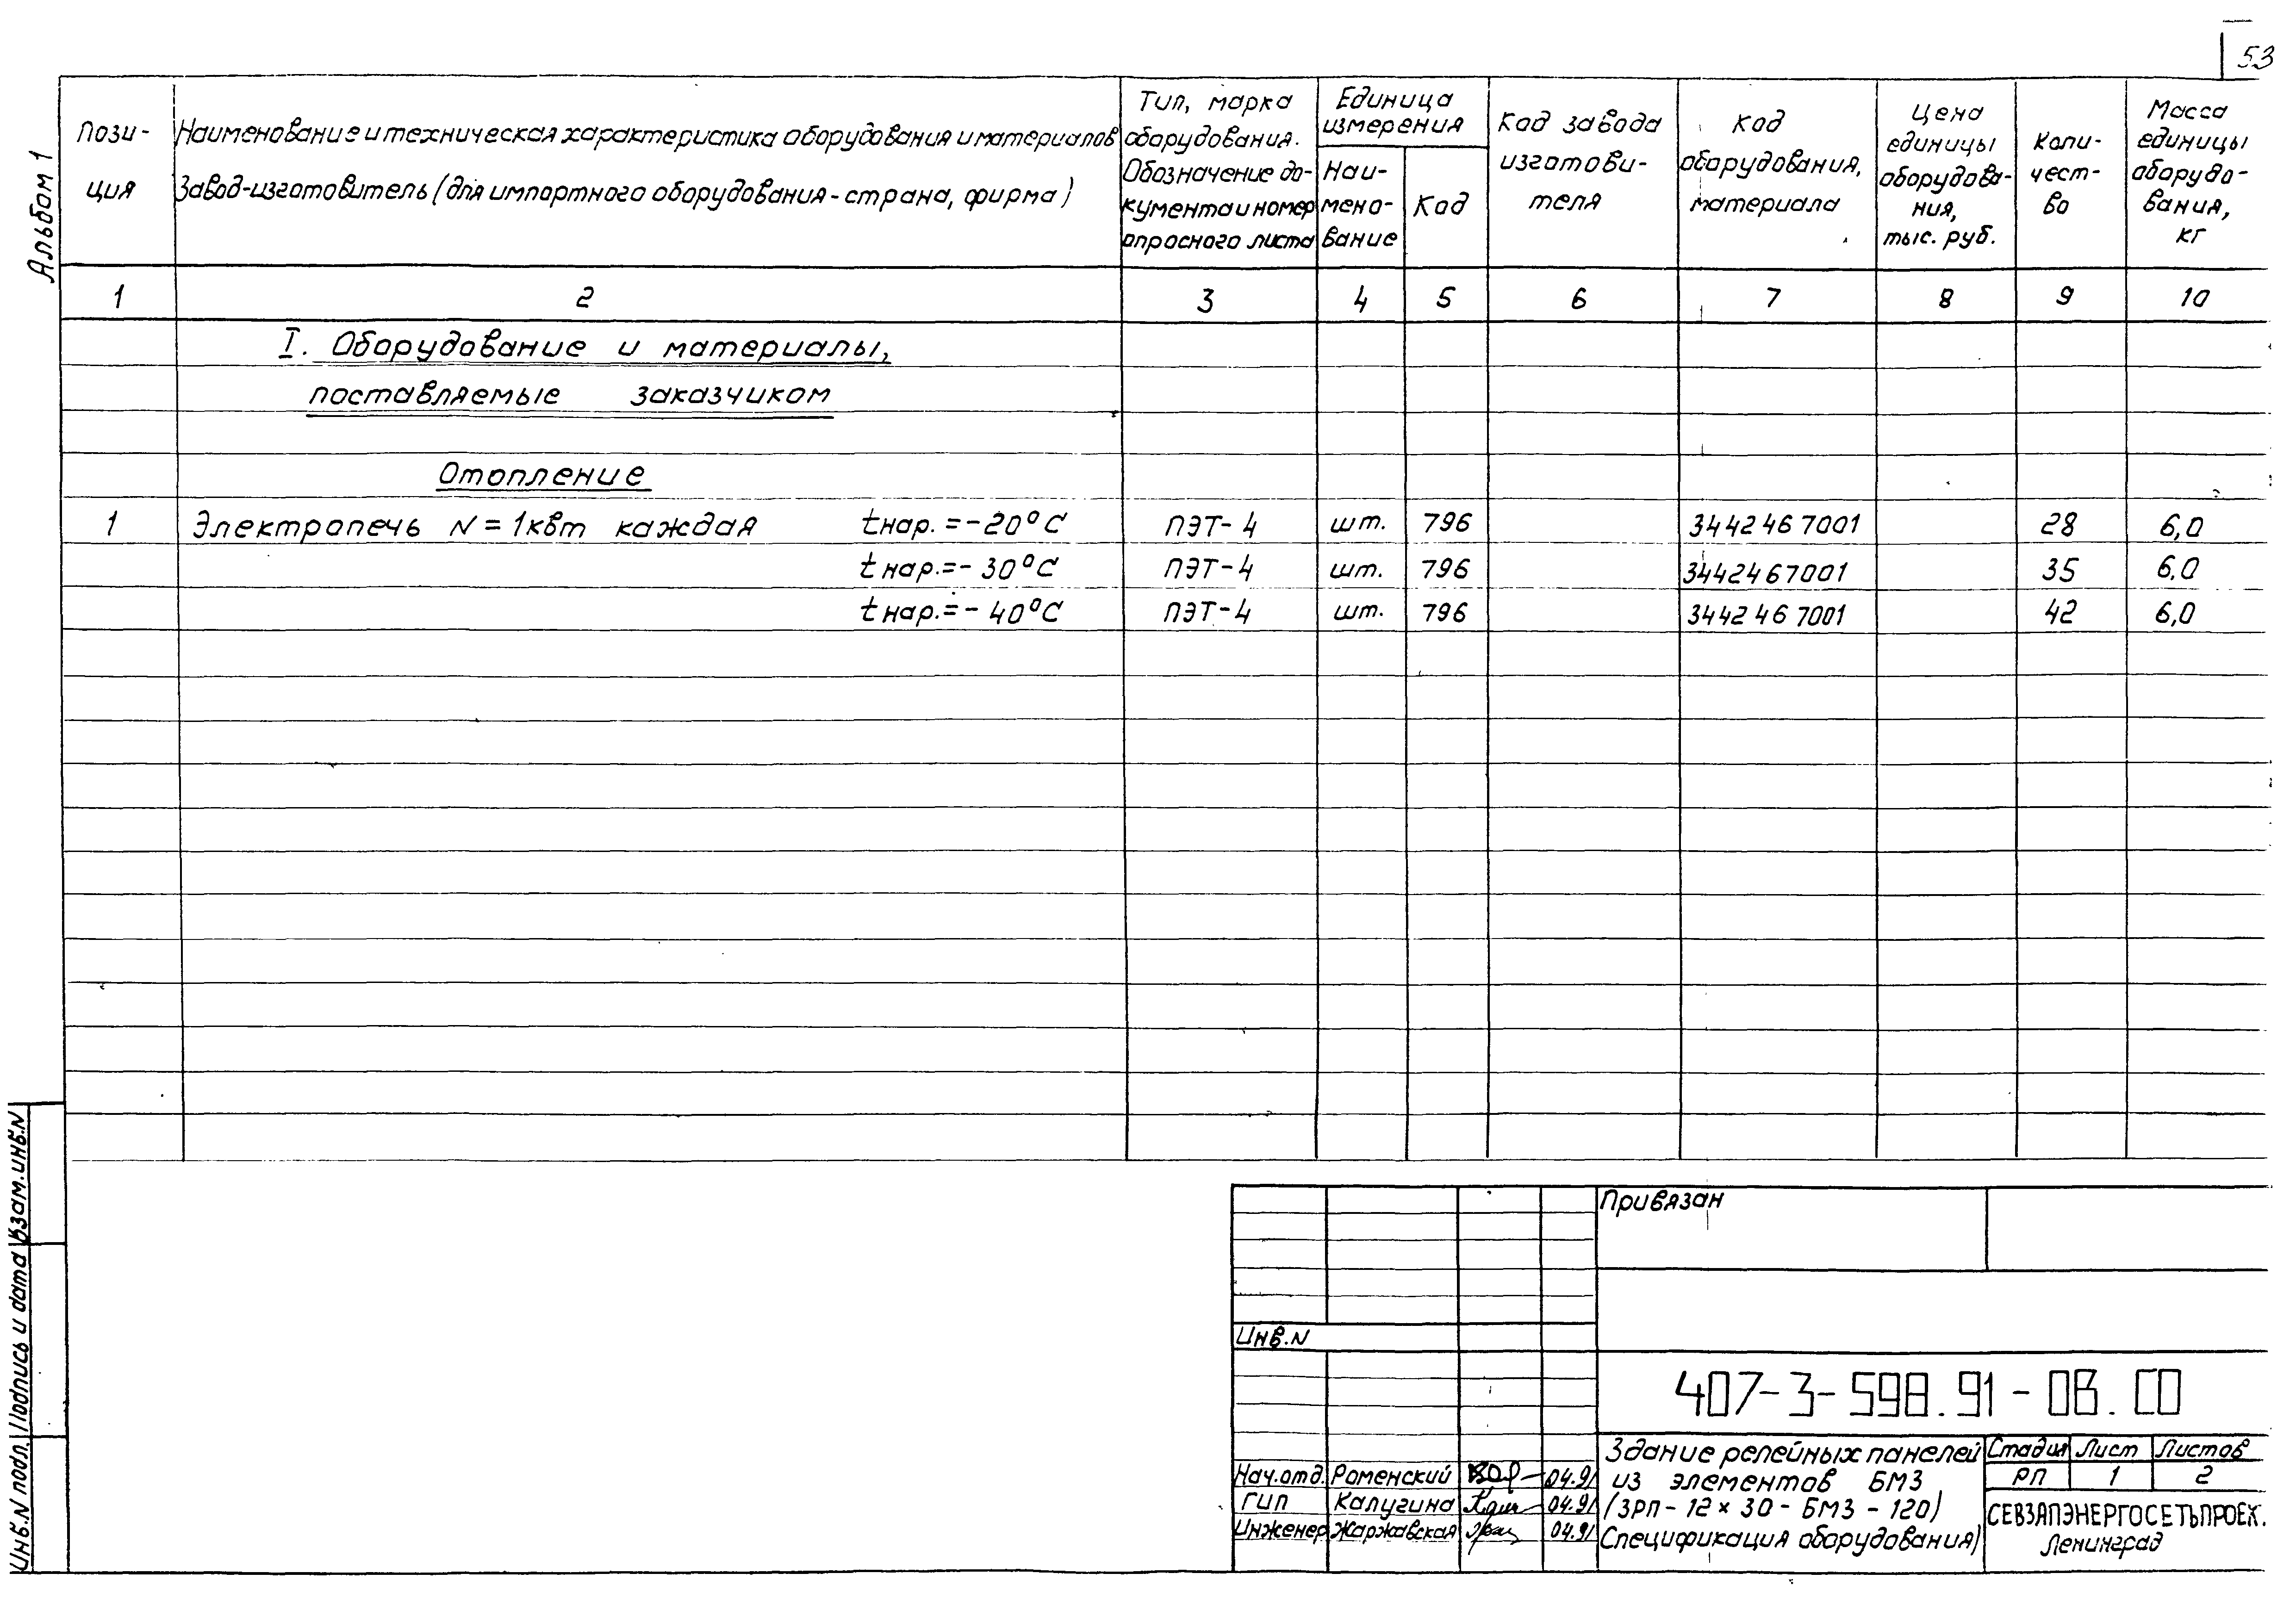 53
Альбом 1
Пози-
ция
Наименование и техническая характеристика оборудования и материалов
Завод-изготовитель (для импортного оборудования - страна, фирма)
Тип, марка
оборудования.
Обозначение до-
кумента и номер
опросного листа
Единица
измерения
Наи-
мено-
вание
Код
Код завода
изготови-
теля
Код
оборудования,
материала
Цена
единицы
оборудова-
ния,
тыс. руб.
Коли-
чест-
во
Масса
единицы
оборудо-
вания,
кг
1 2 3 4 5 6 7 8 9 10
I. Оборудование и материалы,
поставляемые заказчиком
Отопление
1 Электропечь N = 1квт каждая tнар. = -20°C ПЭТ-4 шт. 796 3442467001 28 6,0
tнар. = -30°C ПЭТ-4 шт. 796 3442467001 35 6,0
tнар. = -40°C ПЭТ-4 шт. 796 3442467001 42 6,0
Инв.N подл. Подпись и дата Взам.инв.N
Привязан
Инв.N
407-3-598.91-ОВ.СО
Нач.отд. Роменский 04.91
ГИП Калугина 04.91
Инженер Жаржавская 04.91
Здание релейных панелей
из элементов БМЗ
(ЗРП-12×30-БМЗ-120)
Спецификация оборудования)
Стадия Лист Листов
РП 1 2
СЕВЗАПЭНЕРГОСЕТЬПРОЕК.
Ленинград